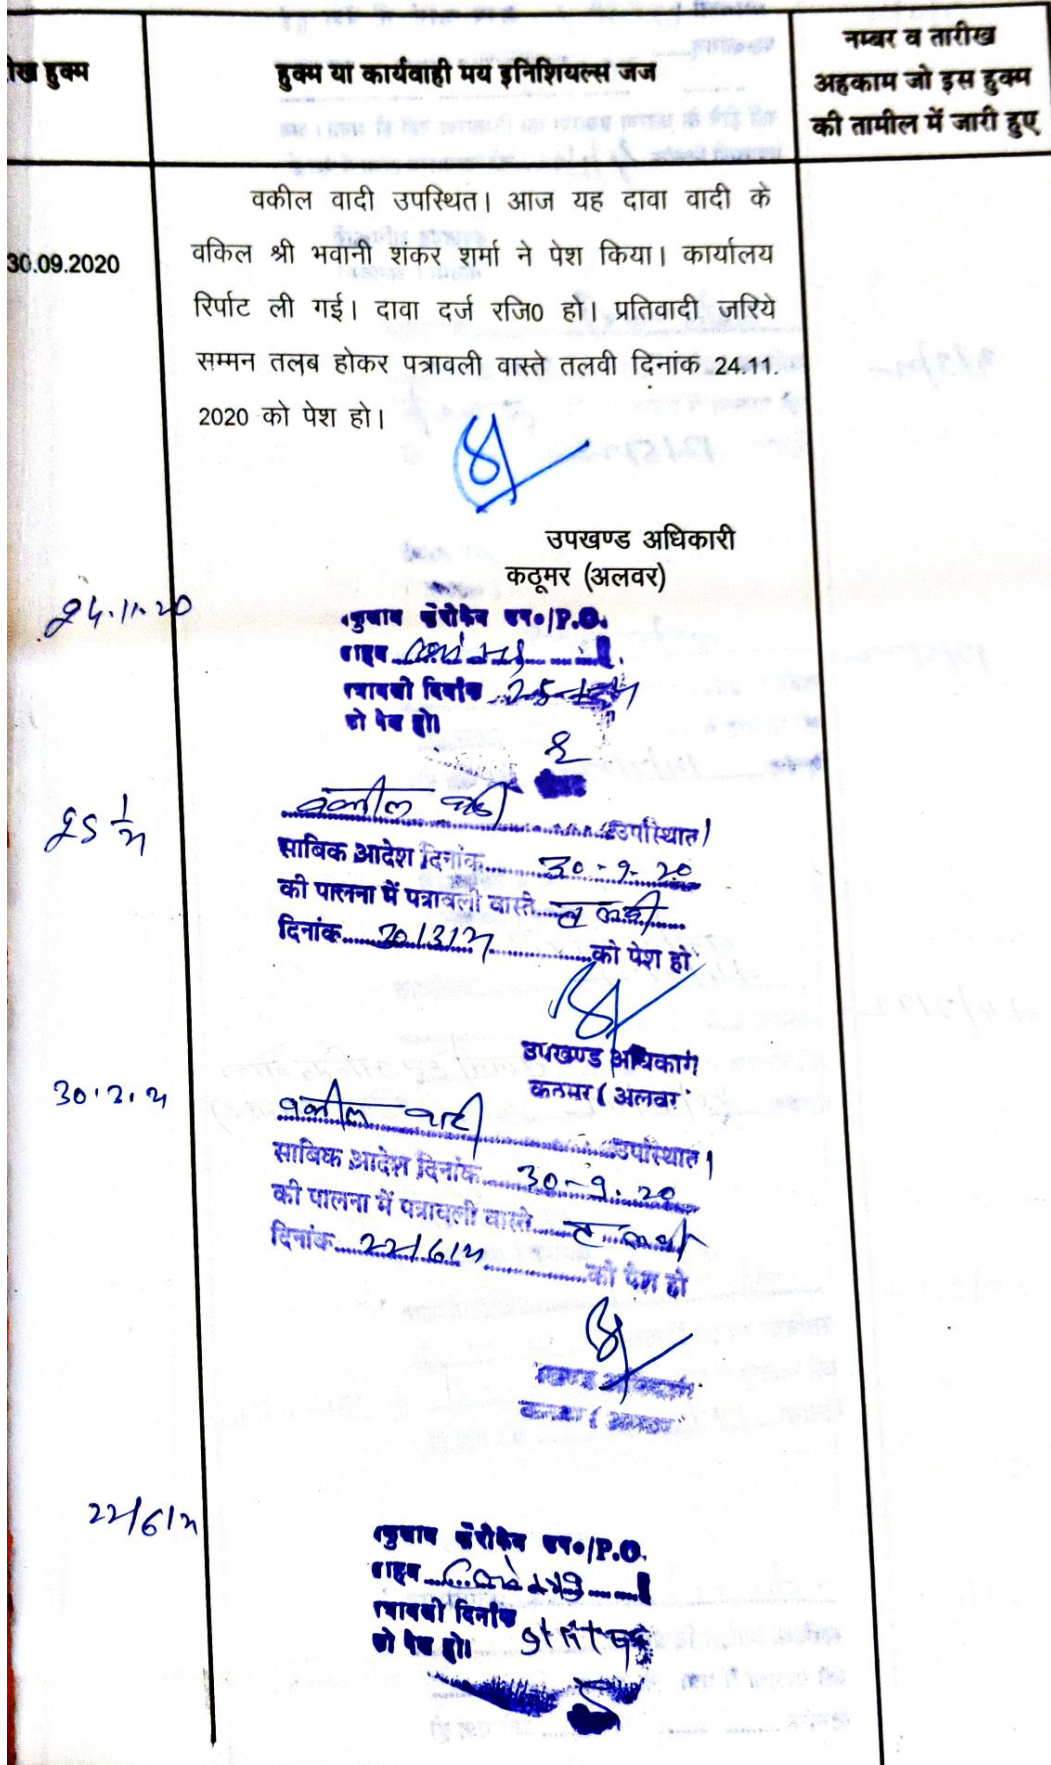 ख हुक्म
हुक्म या कार्यवाही मय इनिशियल्स जज
नम्बर व तारीख
अहकाम जो इस हुक्म
की तामील में जारी हुए
30.09.2020
वकील वादी उपस्थित। आज यह दावा वादी के
वकिल श्री भवानी शंकर शर्मा ने पेश किया। कार्यालय
रिर्पाट ली गई। दावा दर्ज रजि0 हो। प्रतिवादी जरिये
सम्मन तलब होकर पत्रावली वास्ते तलवी दिनांक 24.11.
2020 को पेश हो।
उपखण्ड अधिकारी
कठूमर (अलवर)
24.11.20
/P.O.
दिनांक
को पेश हो।
वकील वादी उपस्थित।
साबिक आदेश दिनांक 30-9-20
की पालना में पत्रावली वास्ते तलवी
दिनांक 30/3/21 को पेश हो
उपखण्ड अधिकारी
कठूमर (अलवर
30.3.21
वकील वादी उपस्थित।
साबिक आदेश दिनांक 30-9-20
की पालना में पत्रावली वास्ते तलवी
दिनांक 22/6/21 को पेश हो
22/6/21
/P.O.
दिनांक
को पेश हो।